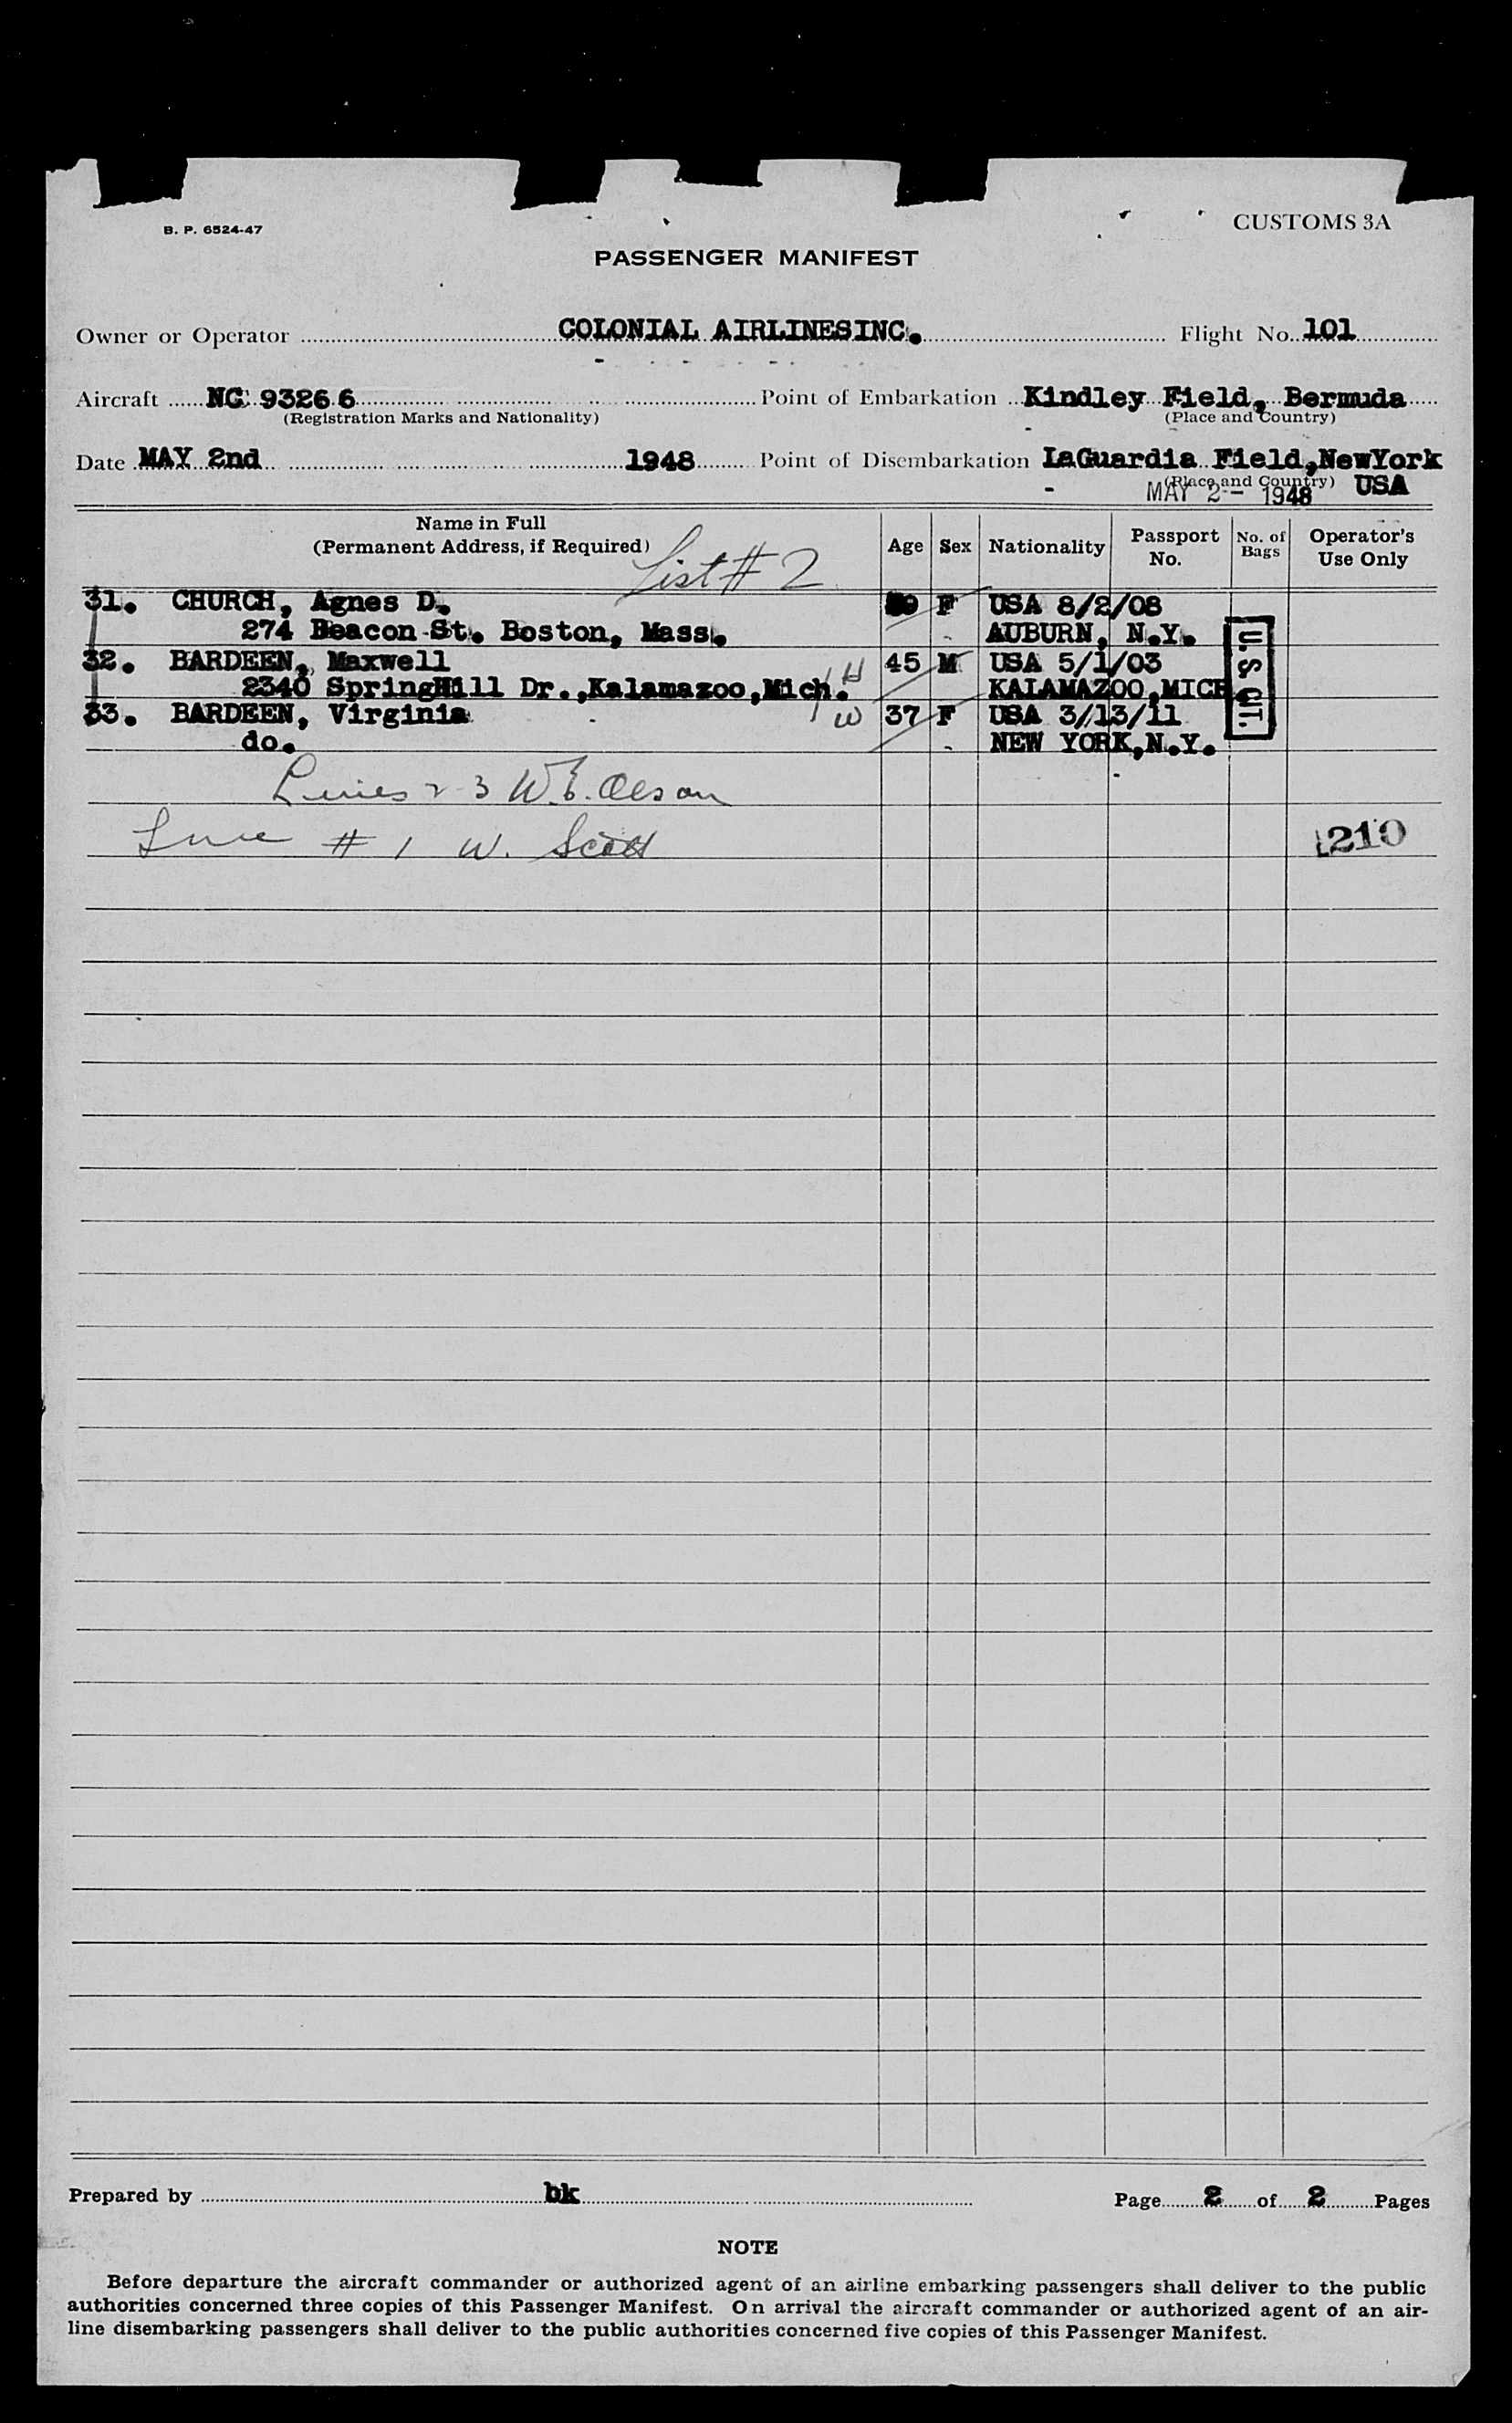 B. P. 6524-47
CUSTOMS 3A
PASSENGER MANIFEST
Owner or Operator COLONIAL AIRLINESINC. Flight No. 101
Aircraft NC 93266 Point of Embarkation Kindley Field, Bermuda
(Registration Marks and Nationality) (Place and Country)
Date MAY 2nd 1948 Point of Disembarkation LaGuardia Field,NewYork
(Place and Country) USA
MAY 2 - 1948
Name in Full
(Permanent Address, if Required) Age Sex Nationality Passport No. No. of Bags Operator's Use Only
List # 2
31. CHURCH, Agnes D. F USA 8/2/08
274 Beacon St. Boston, Mass. AUBURN, N.Y.
32. BARDEEN, Maxwell H 45 M USA 5/1/03
2340 SpringHill Dr.,Kalamazoo,Mich. KALAMAZOO,MICH
33. BARDEEN, Virginia W 37 F USA 3/13/11
do. NEW YORK,N.Y.
U.S. CIT.
Lines 2-3 W.E. Olson
Line # 1 W. Scott
210
Prepared by bk Page 2 of 2 Pages
NOTE
Before departure the aircraft commander or authorized agent of an airline embarking passengers shall deliver to the public
authorities concerned three copies of this Passenger Manifest. On arrival the aircraft commander or authorized agent of an air-
line disembarking passengers shall deliver to the public authorities concerned five copies of this Passenger Manifest.